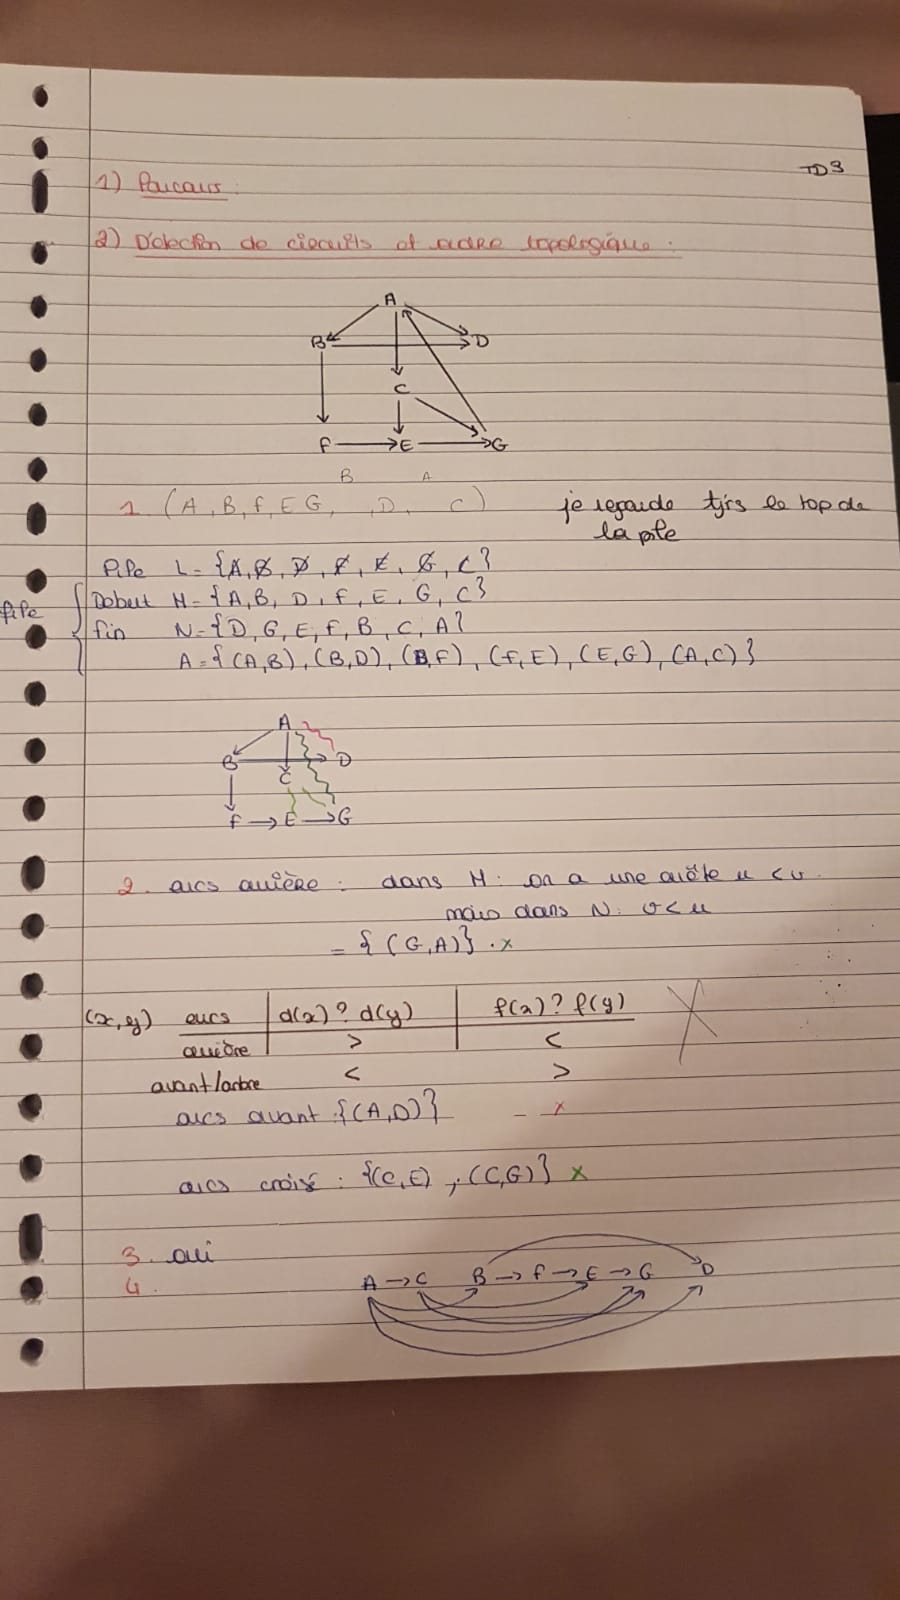 TD3
1) Parcours :
2) Détection de circuits et ordre topologique :
A
B D
C
F E G
B A
1. (A, B, F, E G, , D, C) je regarde tjrs le top de
la pile
Pile L = {A, B, D, F, E, G, C}
file Debut M = {A, B, D, F, E, G, C}
fin N = {D, G, E, F, B, C, A}
A = {(A,B), (B,D), (B,F), (F,E), (E,G), (A,C)}
A
B D
C
F → E → G
2. arcs arrière : dans M : on a une arête u < v.
mais dans N : v < u
= {(G,A)} . x
(x,y) arcs d(x) ? d(y) f(x) ? f(y)
arrière > <
avant/arbre < >
arcs avant : {(A,D)} - x
arcs croisé : {(C,E) , (C,G)} x
3. oui
4. A → C B → F → E → G D